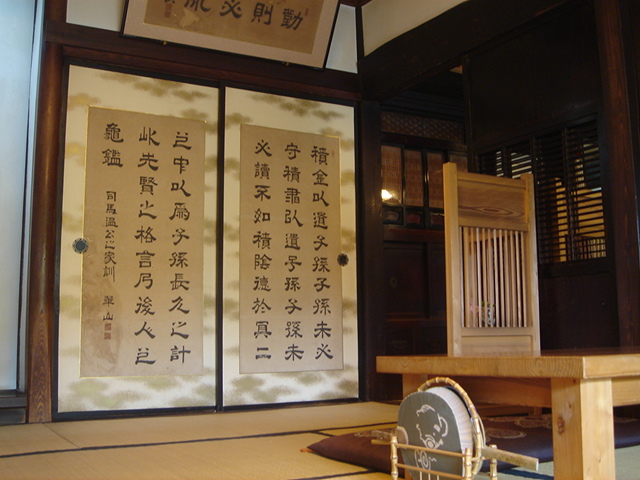 勤則必
積金以遺子孫子孫未必
守積書以遺子孫子孫未
必讀不如積陰德於冥二
之中以為子孫長久之計
此先賢之格言乃後人之
龜鑑
司馬溫公之家訓